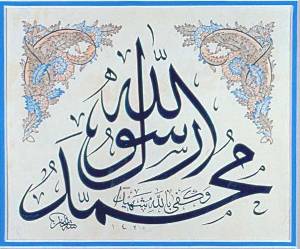 محمد رسول الله
وكفى بالله شهيدا